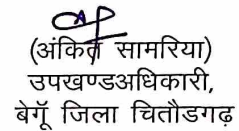 (अंकित सामरिया)
उपखण्डअधिकारी,
बेगूँ जिला चितौडगढ़